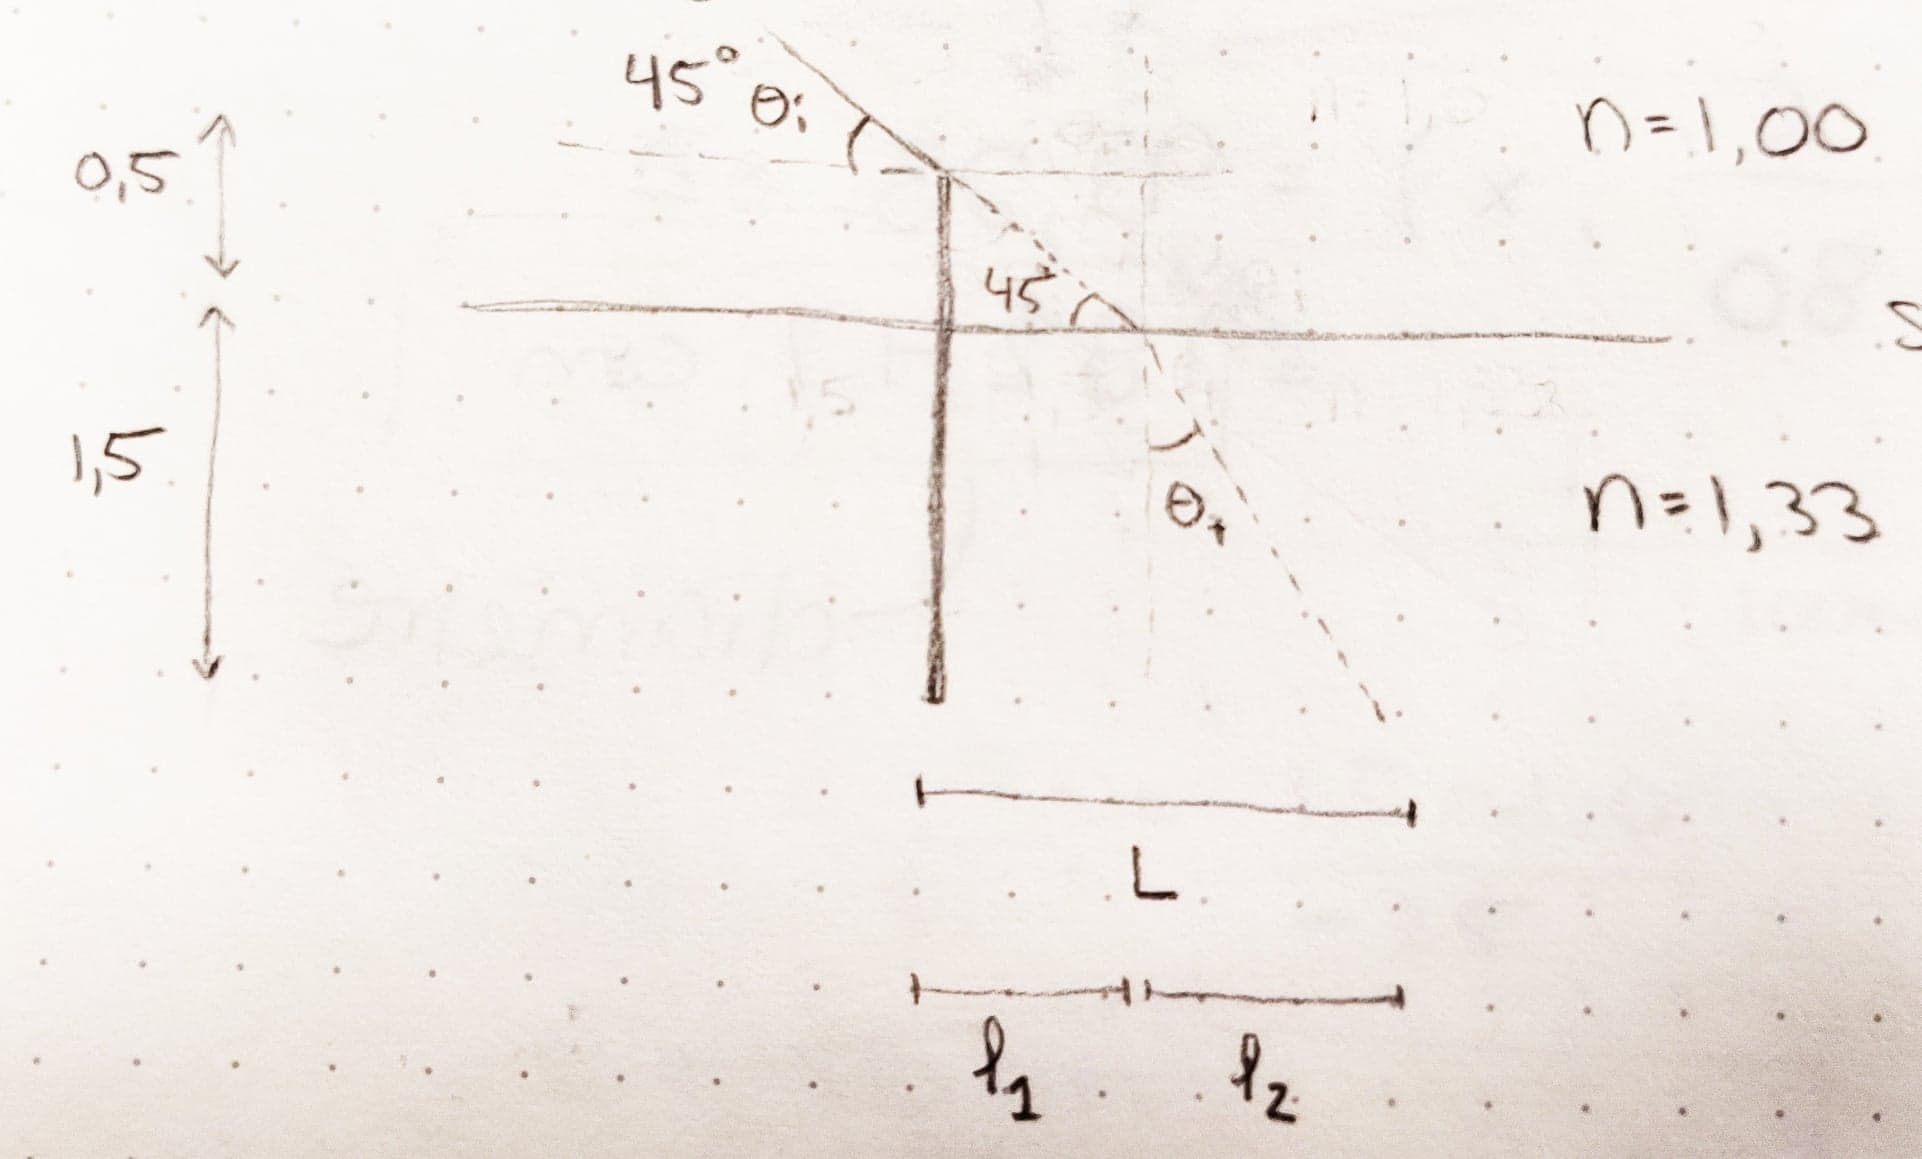 45° θi
n=1,00
0,5
45
1,5
θt
n=1,33
L
l1
l2